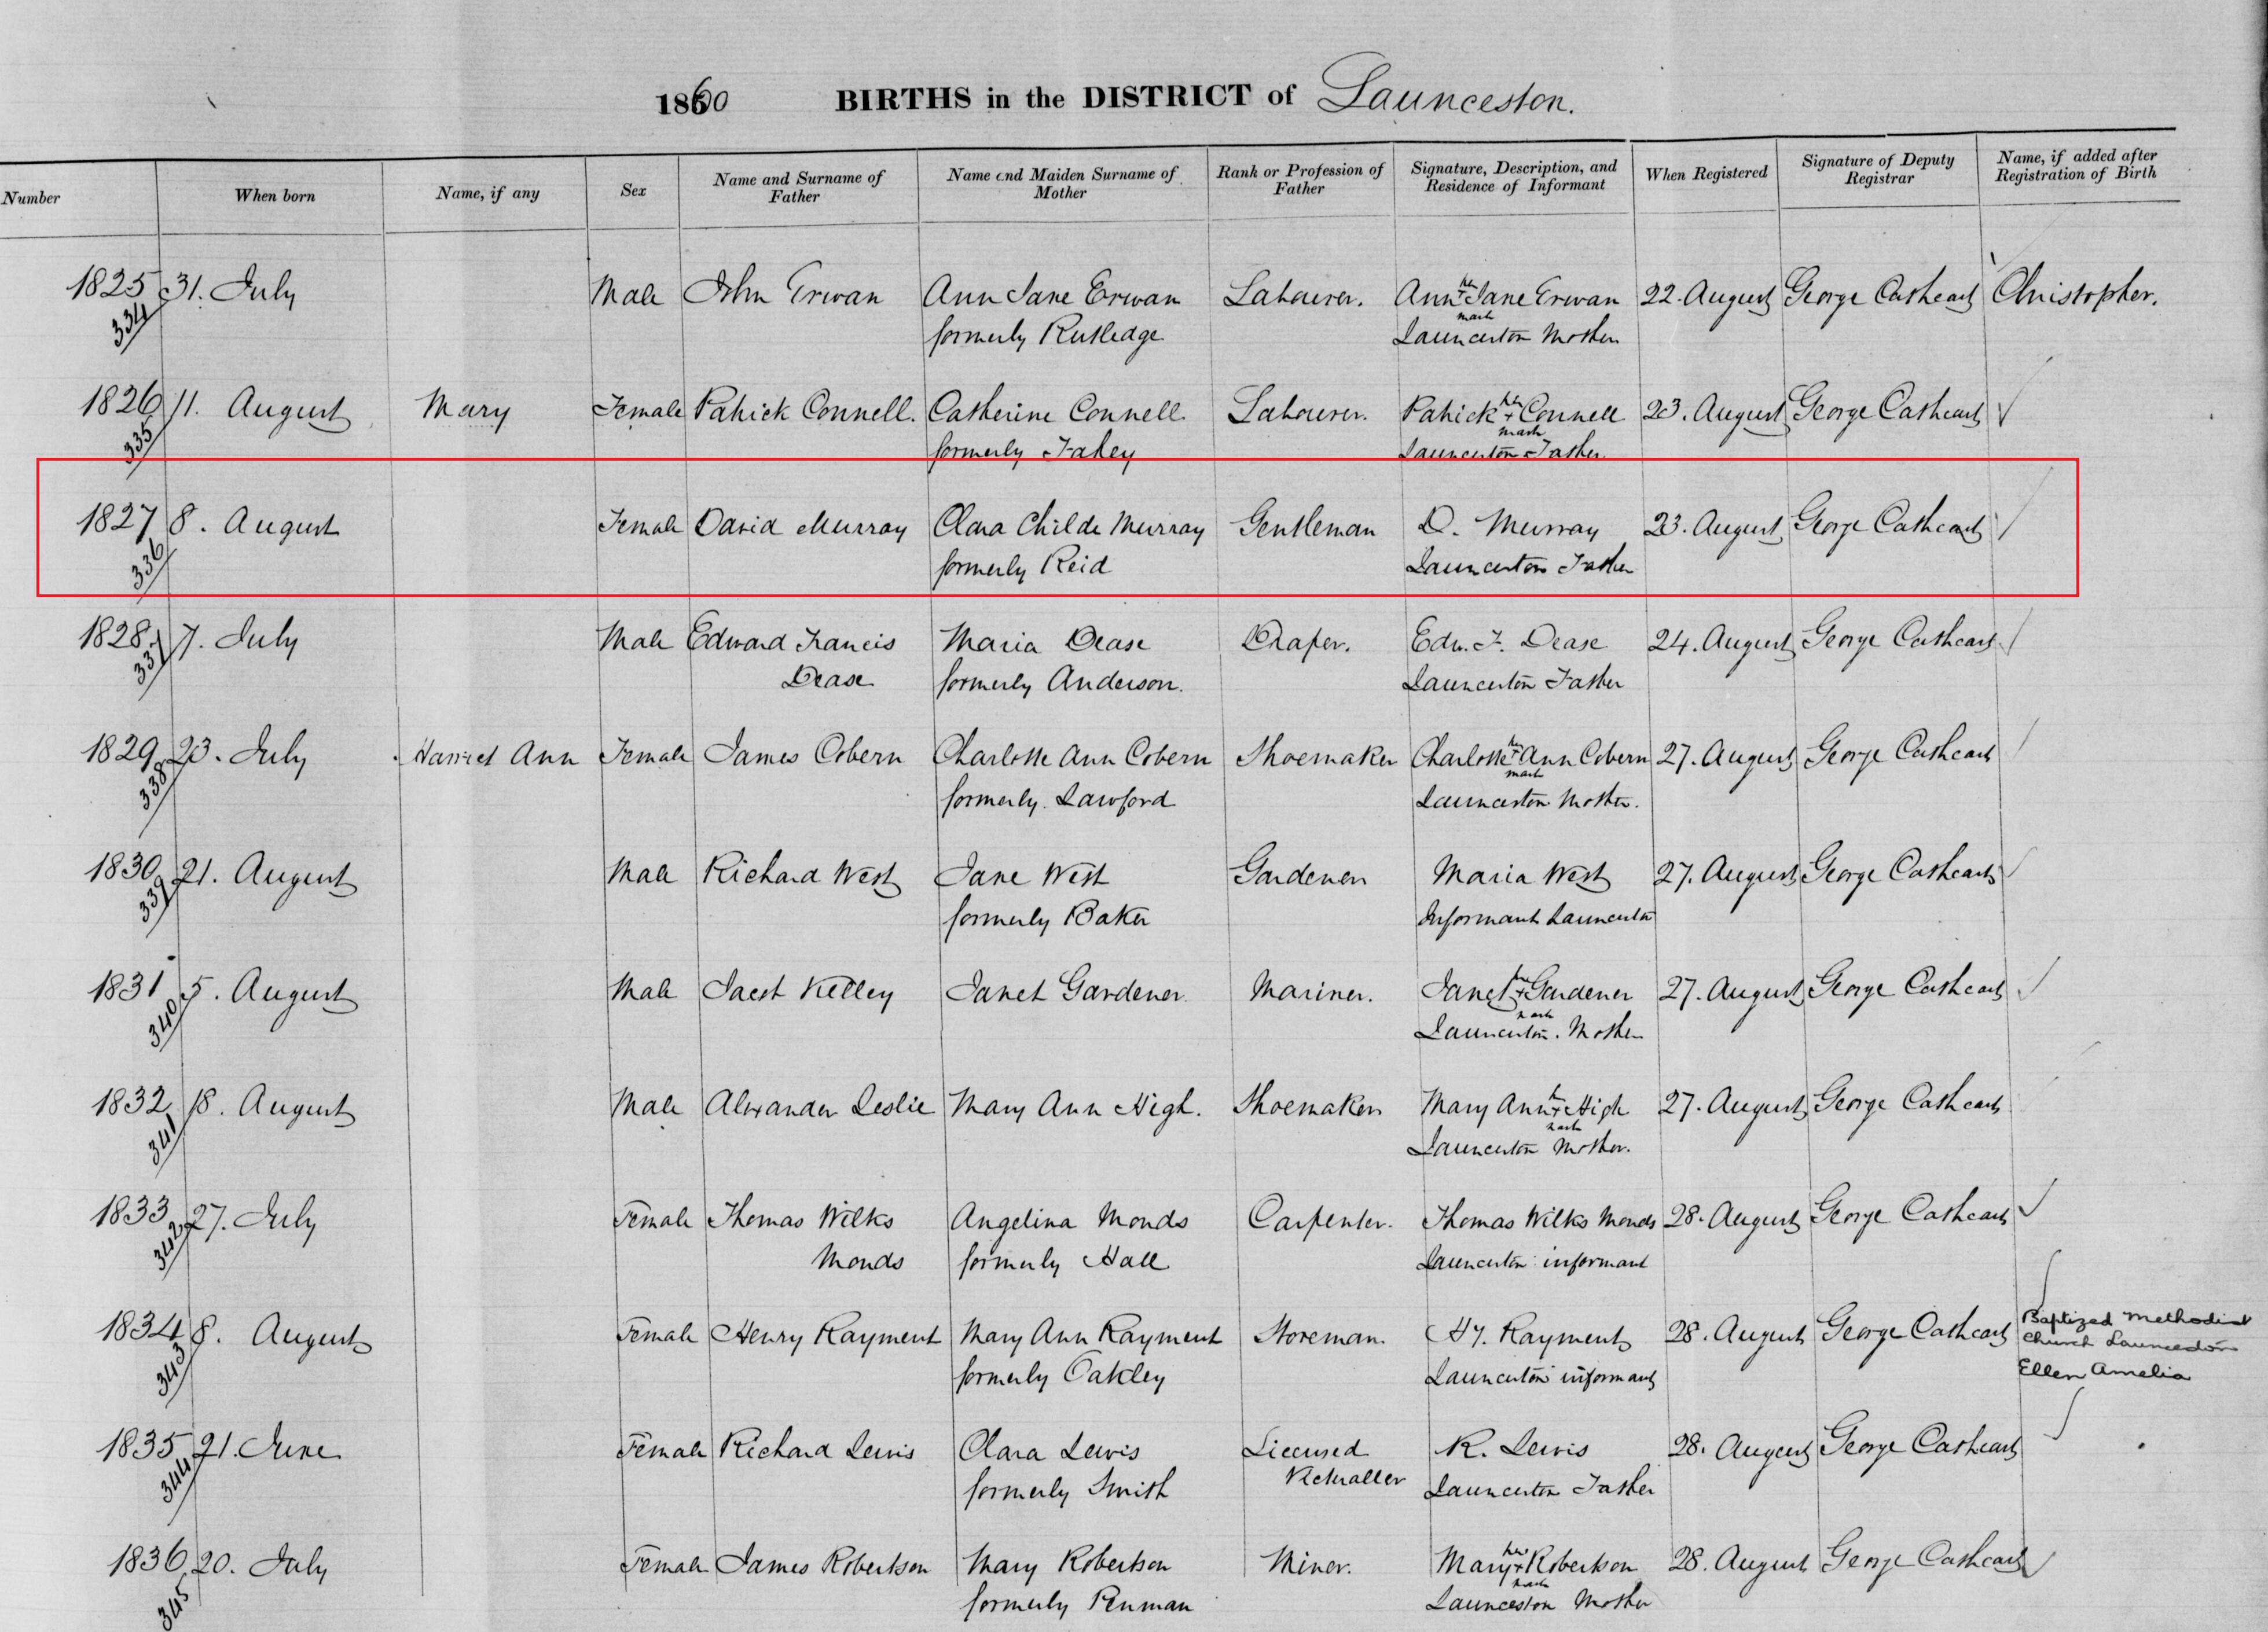 1860 BIRTHS in the DISTRICT of Launceston.
Number When born Name, if any Sex Name and Surname of Father Name and Maiden Surname of Mother Rank or Profession of Father Signature, Description, and Residence of Informant When Registered Signature of Deputy Registrar Name, if added after Registration of Birth
1825 31. July Male John Erwan Ann Jane Erwan Labourer. Ann + Jane Erwan 22. August George Cathcart Christopher.
334 formerly Rutledge mark Launceston Mother
1826 11. August Mary Female Patrick Connell. Catherine Connell Labourer. Patrick + Connell 23. August George Cathcart
335 formerly Fahey mark Launceston Father.
1827 8. August Female David Murray Clara Childe Murray Gentleman D. Murray 23. August George Cathcart
336 formerly Reid Launceston Father
1828 7. July Male Edward Francis Maria Dease Draper. Edw. F. Dease 24. August George Cathcart
337 Dease formerly Anderson. Launceston Father
1829 23. July Harriet Ann Female James Cobern Charlotte Ann Cobern Shoemaker Charlotte + Ann Cobern 27. August George Cathcart
338 formerly Lawford mark Launceston Mother.
1830 21. August Male Richard West Jane West Gardener Maria West 27. August George Cathcart
339 formerly Baker Informant Launceston
1831 5. August Male Kelley Janet Gardener Mariner. Janet + Gardener 27. August George Cathcart
340 mark Launceston. Mother
1832 18. August Male Alexander Leslie Mary Ann High. Shoemaker Mary Ann + High 27. August George Cathcart
341 mark Launceston Mother.
1833 27. July Female Thomas Wilks Angelina Monds Carpenter. Thomas Wilks Monds 28. August George Cathcart
342 Monds formerly Hall Launceston informant
1834 8. August Female Henry Rayment Mary Ann Rayment Storeman Hy. Rayment 28. August George Cathcart Baptized Methodist Church Launceston
343 formerly Oakley Launceston informant Ellen Amelia
1835 21. June Female Richard Lewis Clara Lewis Licensed R. Lewis 28. August George Cathcart
344 formerly Smith Victualler Launceston Father
1836 20. July Female James Robertson Mary Robertson Miner. Mary + Robertson 28. August George Cathcart
345 formerly Penman her mark Launceston Mother